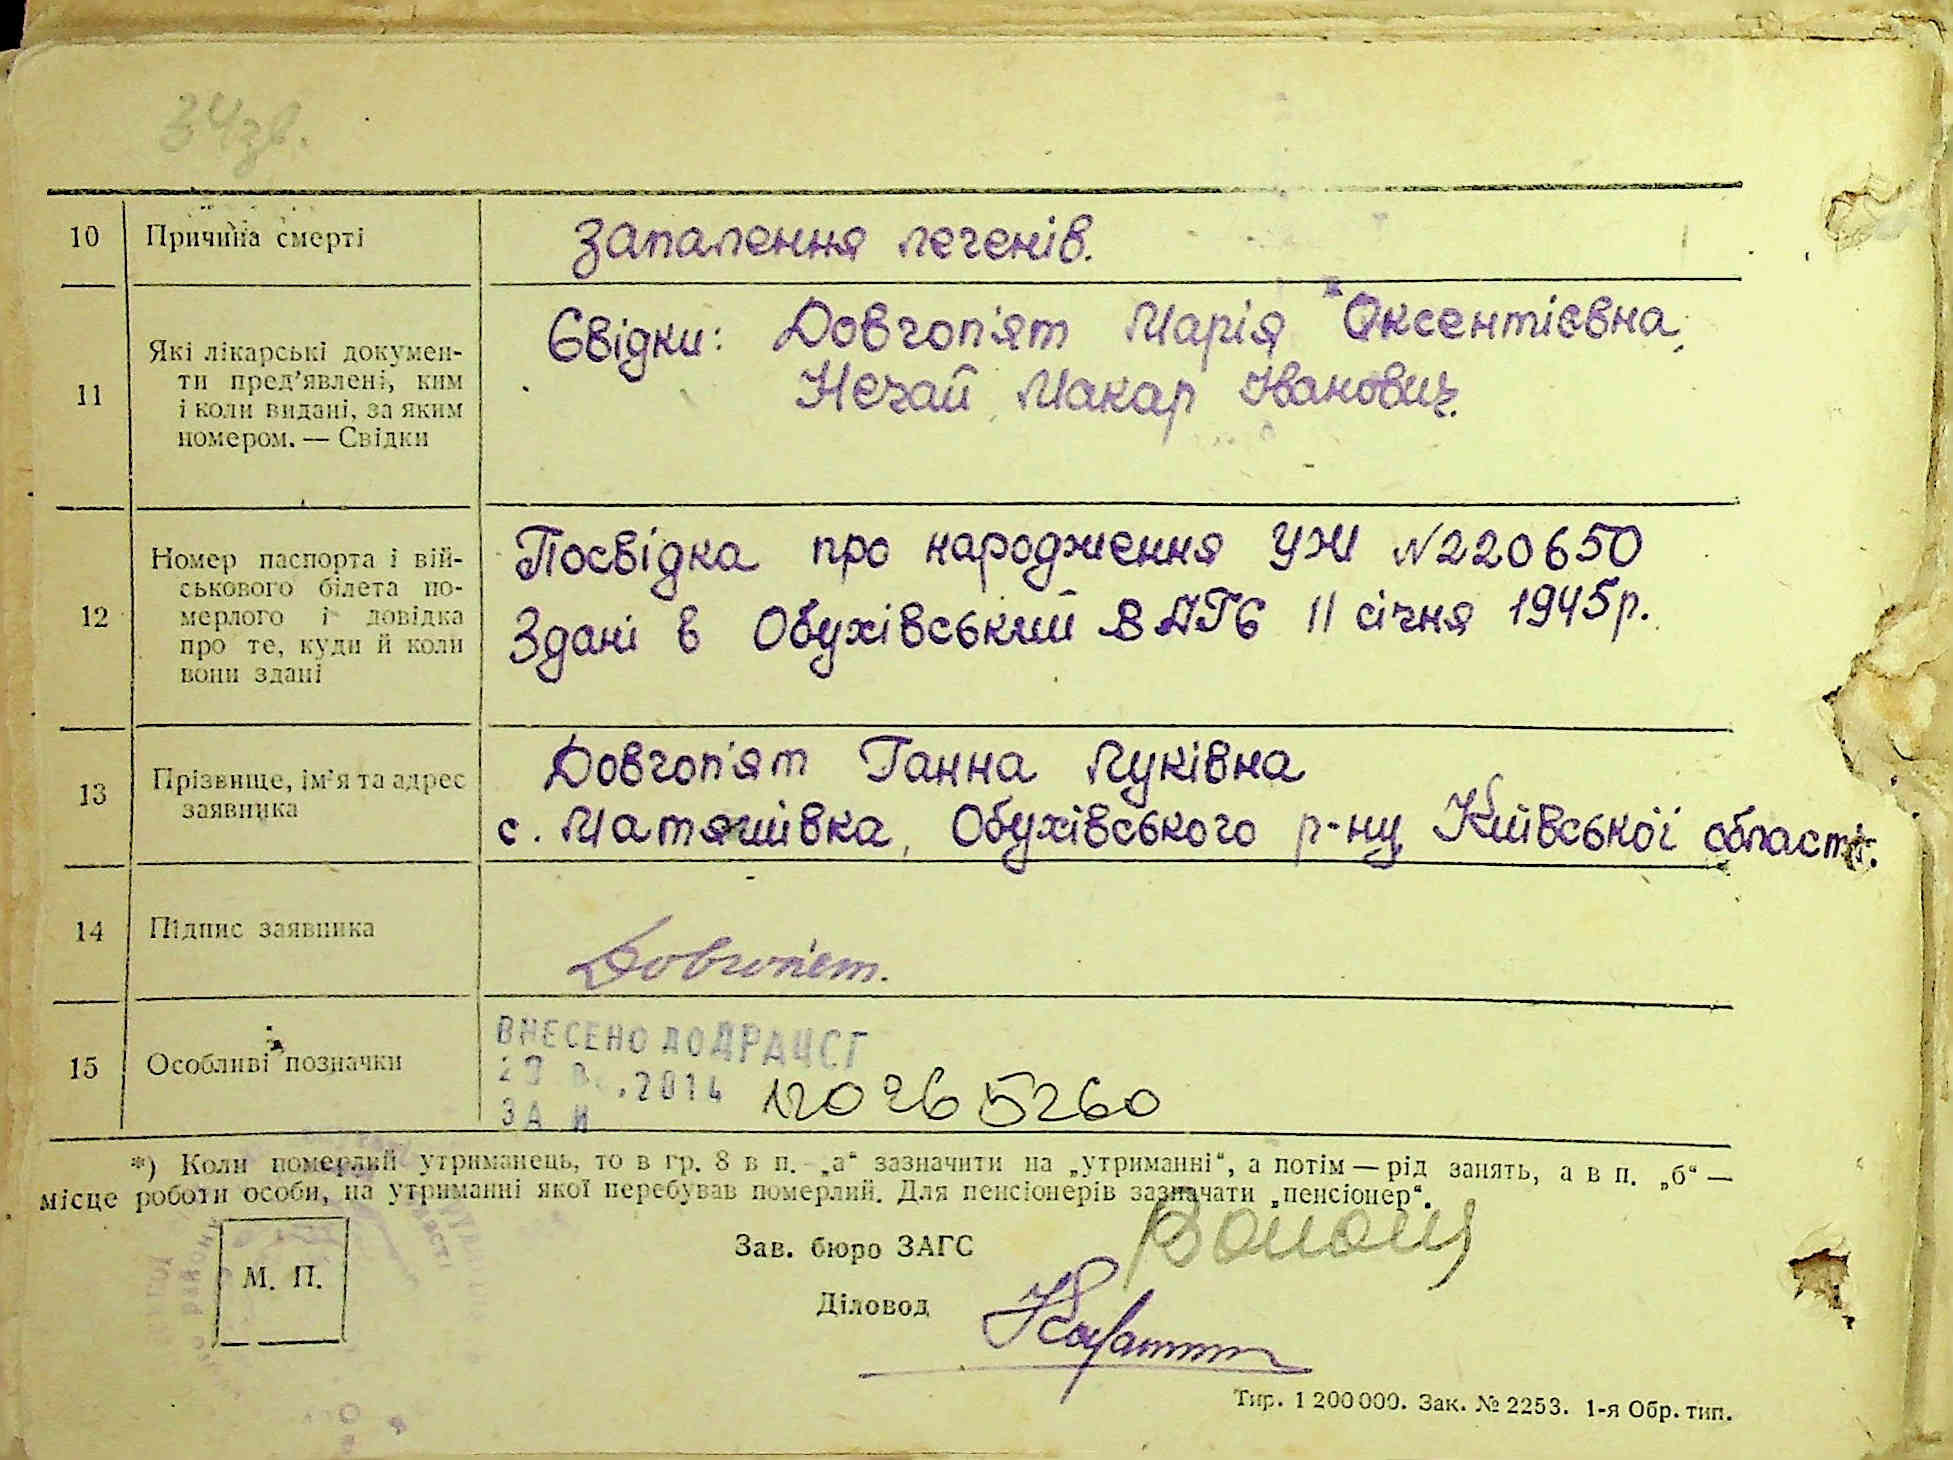 34зв.
10 Причина смерті
Запалення легенів.
11 Які лікарські докумен-
ти пред’явлені, ким
і коли видані, за яким
номером. — Свідки
Свідки: Довгоп'ят Марія Оксентієвна,
Нечай Макар Іванович.
12 Номер паспорта і вій-
ськового білета по-
мерлого і довідка
про те, куди й коли
вони здані
Посвідка про народження УЖ №220650
Здані в Обухівський ВАГС 11 січня 1945р.
13 Прізвище, ім’я та адрес
заявника
Довгоп'ят Ганна Луківна
с. Матяшівка, Обухівського р-ну Київської області.
14 Підпис заявника
Довгопʼят.
15 Особливі позначки
ВНЕСЕНО ДО ДРАЦСГ
.2014
ЗА №
*) Коли померлий утриманець, то в гр. 8 в п. „а“ зазначити на „утриманні“, а потім — рід занять, а в п. „б“ —
місце роботи особи, на утриманні якої перебував померлий. Для пенсіонерів зазначати „пенсіонер“.
Зав. бюро ЗАГС
М. П.
Діловод
Тир. 1 200 000. Зак. № 2253. 1-я Обр. тип.